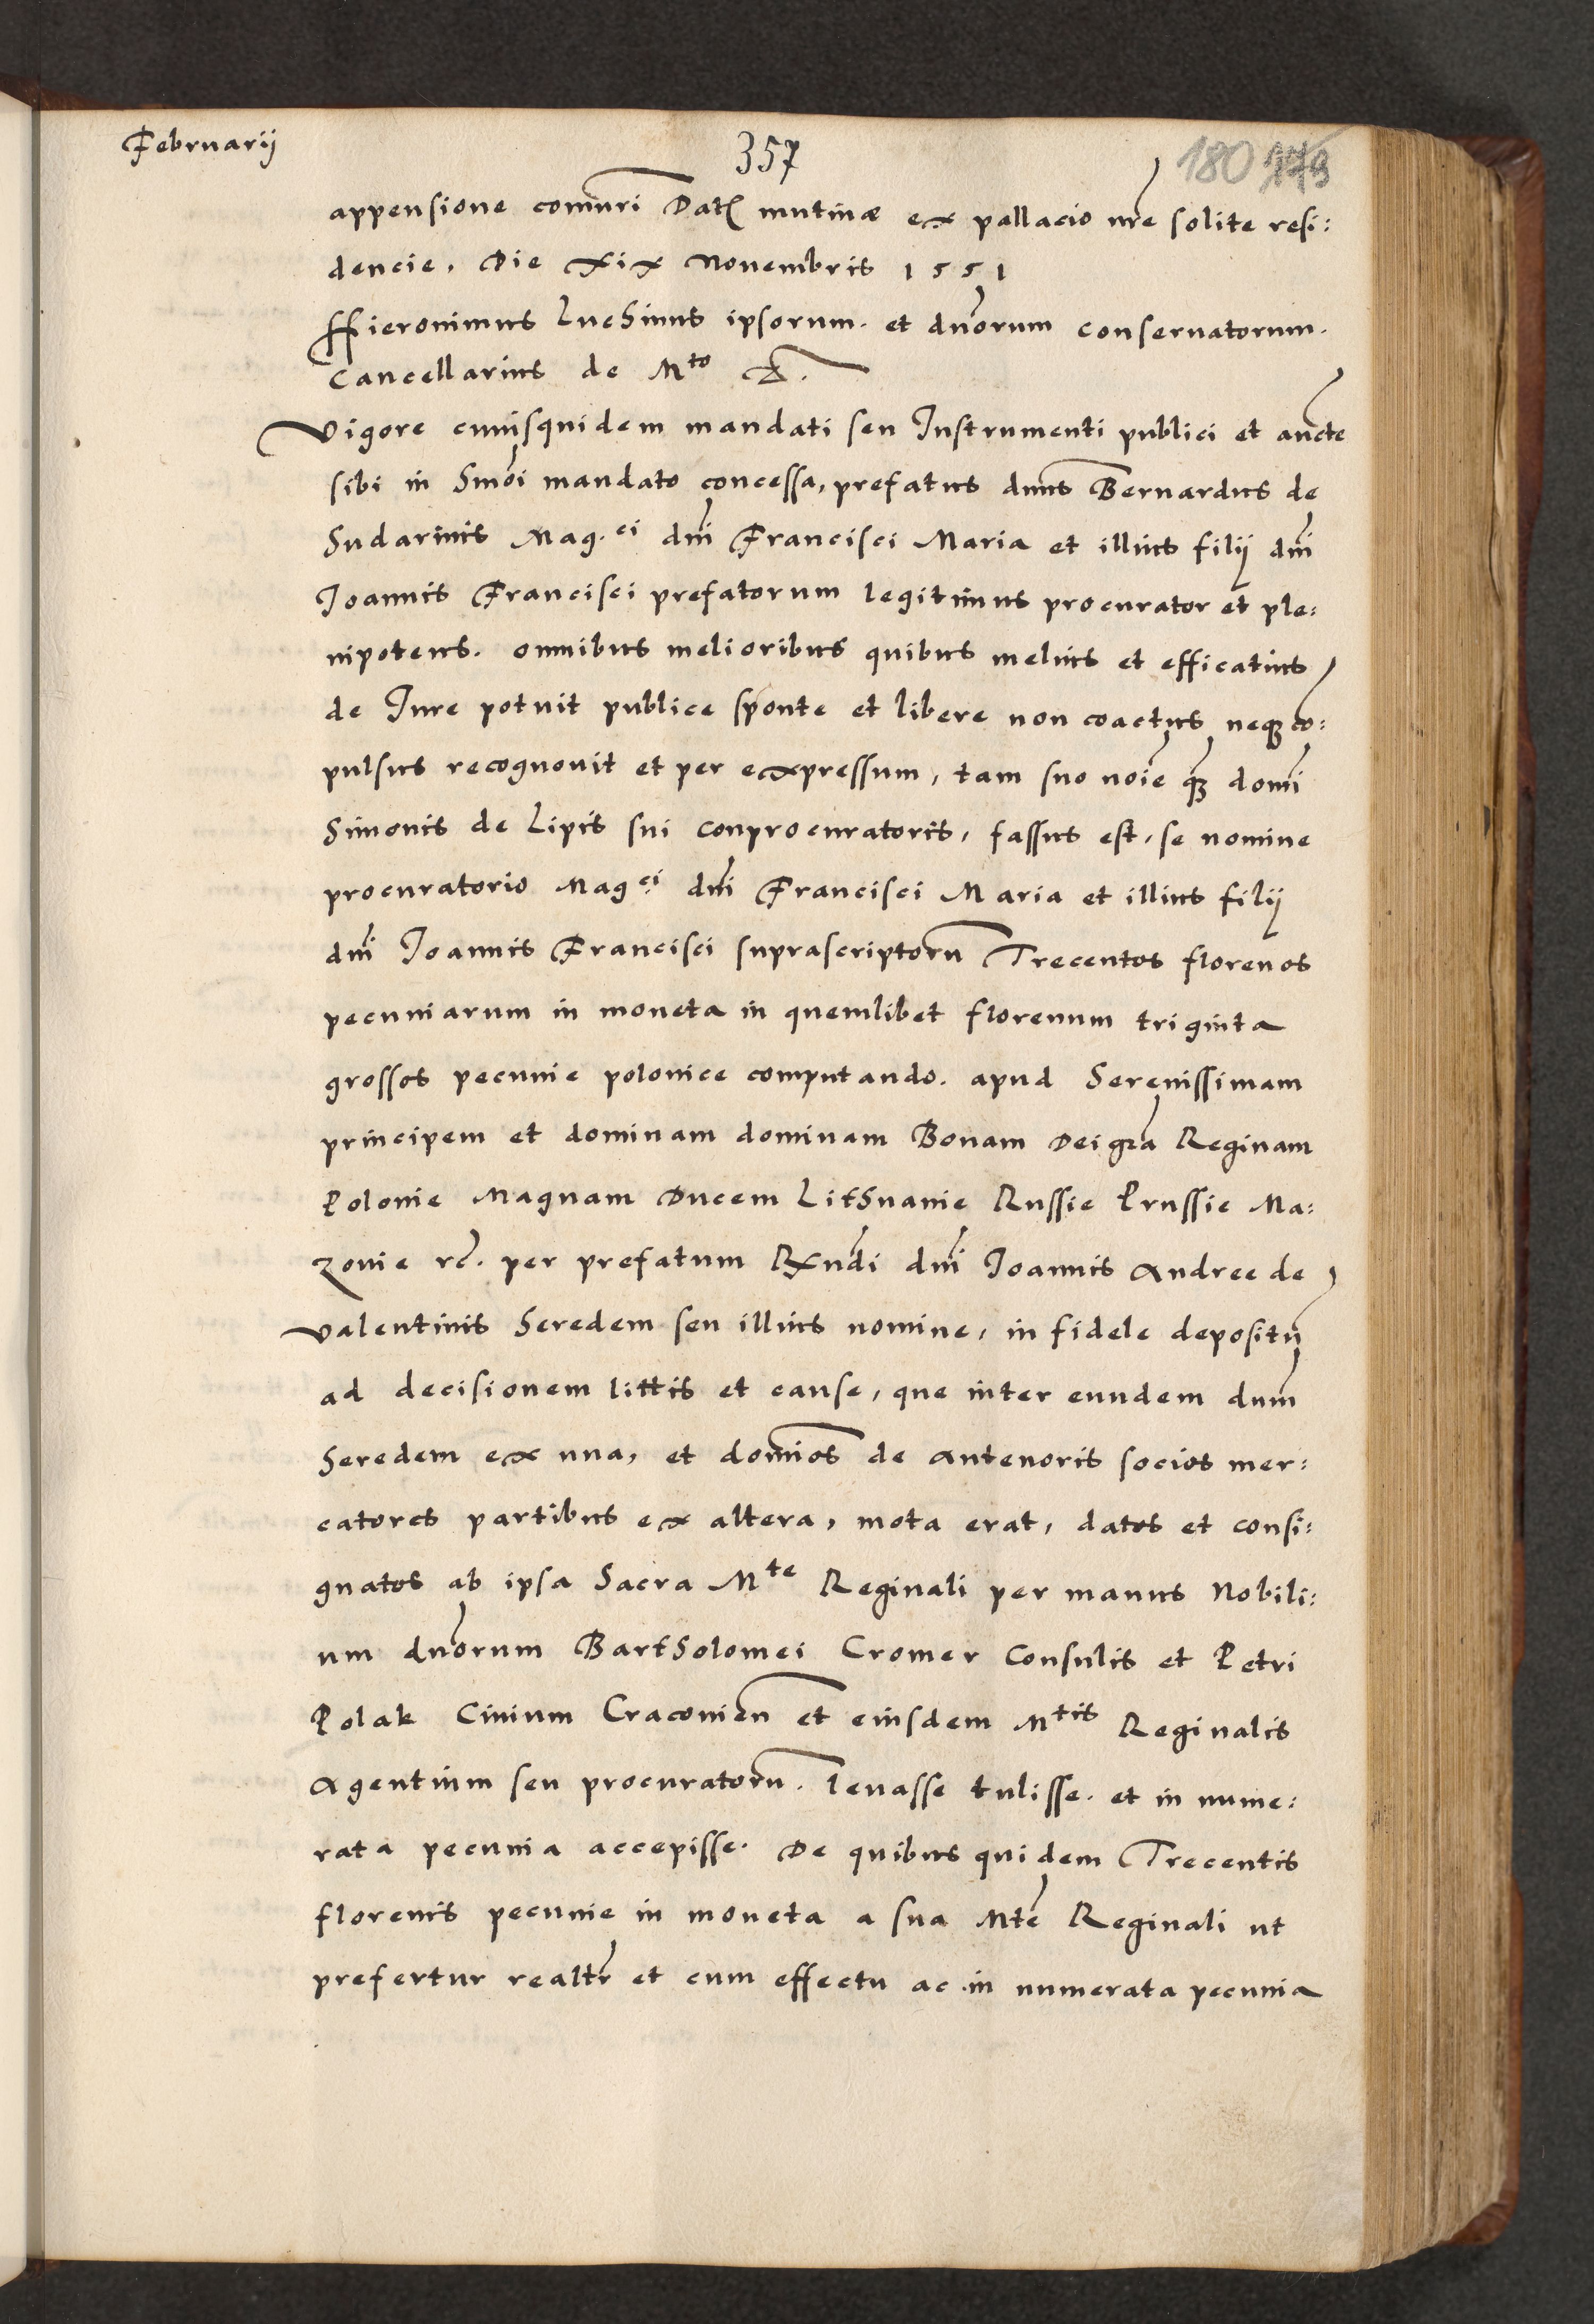 Februarij
357
180 179
appensione comuri Dat mutinæ ex pallacio nre solite resi:
dencie. Die xix Nouembris 1551
Hieronimus Luchinus ipsorum. et dnorum conseruatorum.
Cancellarius de Mto &.
Vigore cuiusquidem mandati seu Instrumenti publici et aucte
sibi in hmoi mandato concessa, prefatus dnus Bernardus de
Sudarinis Mag.ci dni Francisci Maria et illius filij dni
Joannis Francisci prefatorum legitimus procurator et ple:
nipotens. omnibus melioribus quibus melius et efficatius
de Jure potuit publice sponte et libere non coactus neqz co:
pulsus recognouit et per expressum, tam suo noie qz domi
Simonis de Lipis sui conprocuratoris, fassus est, se nomine
procuratorio Magci dni Francisci Maria et illius filij
dni Joannis Francisci suprascriptoru Trecentos florenos
pecuniarum in moneta in quemlibet florenum triginta
grossos pecunie polonice computando. apud Serenissimam
principem et dominam dominam Bonam Dei gra Reginam
Polonie Magnam Ducem Lithuanie Russie Prussie Ma:
zouie rc. per prefatum Rxndi dni Joannis Andree de
Valentinis heredem seu illius nomine, in fidele depositu
ad decisionem littis et cause, que inter eundem dnum
heredem ex una, et domios de Antenoris socios mer:
catores partibus ex altera, mota erat, datos et consi:
gnatos ab ipsa Sacra Mte Reginali per manus Nobili:
um dnorum Bartholomei Cromer Consulis et Petri
Polak Ciuium Cracouien et eiusdem Mtis Reginalis
Agentium seu procuratoru. leuasse tulisse. et in nume:
rata pecunia accepisse. De quibus quidem Trecentis
florenis pecunie in moneta a sua Mte Reginali ut
prefertur realtr et cum effectu ac in numerata pecunia